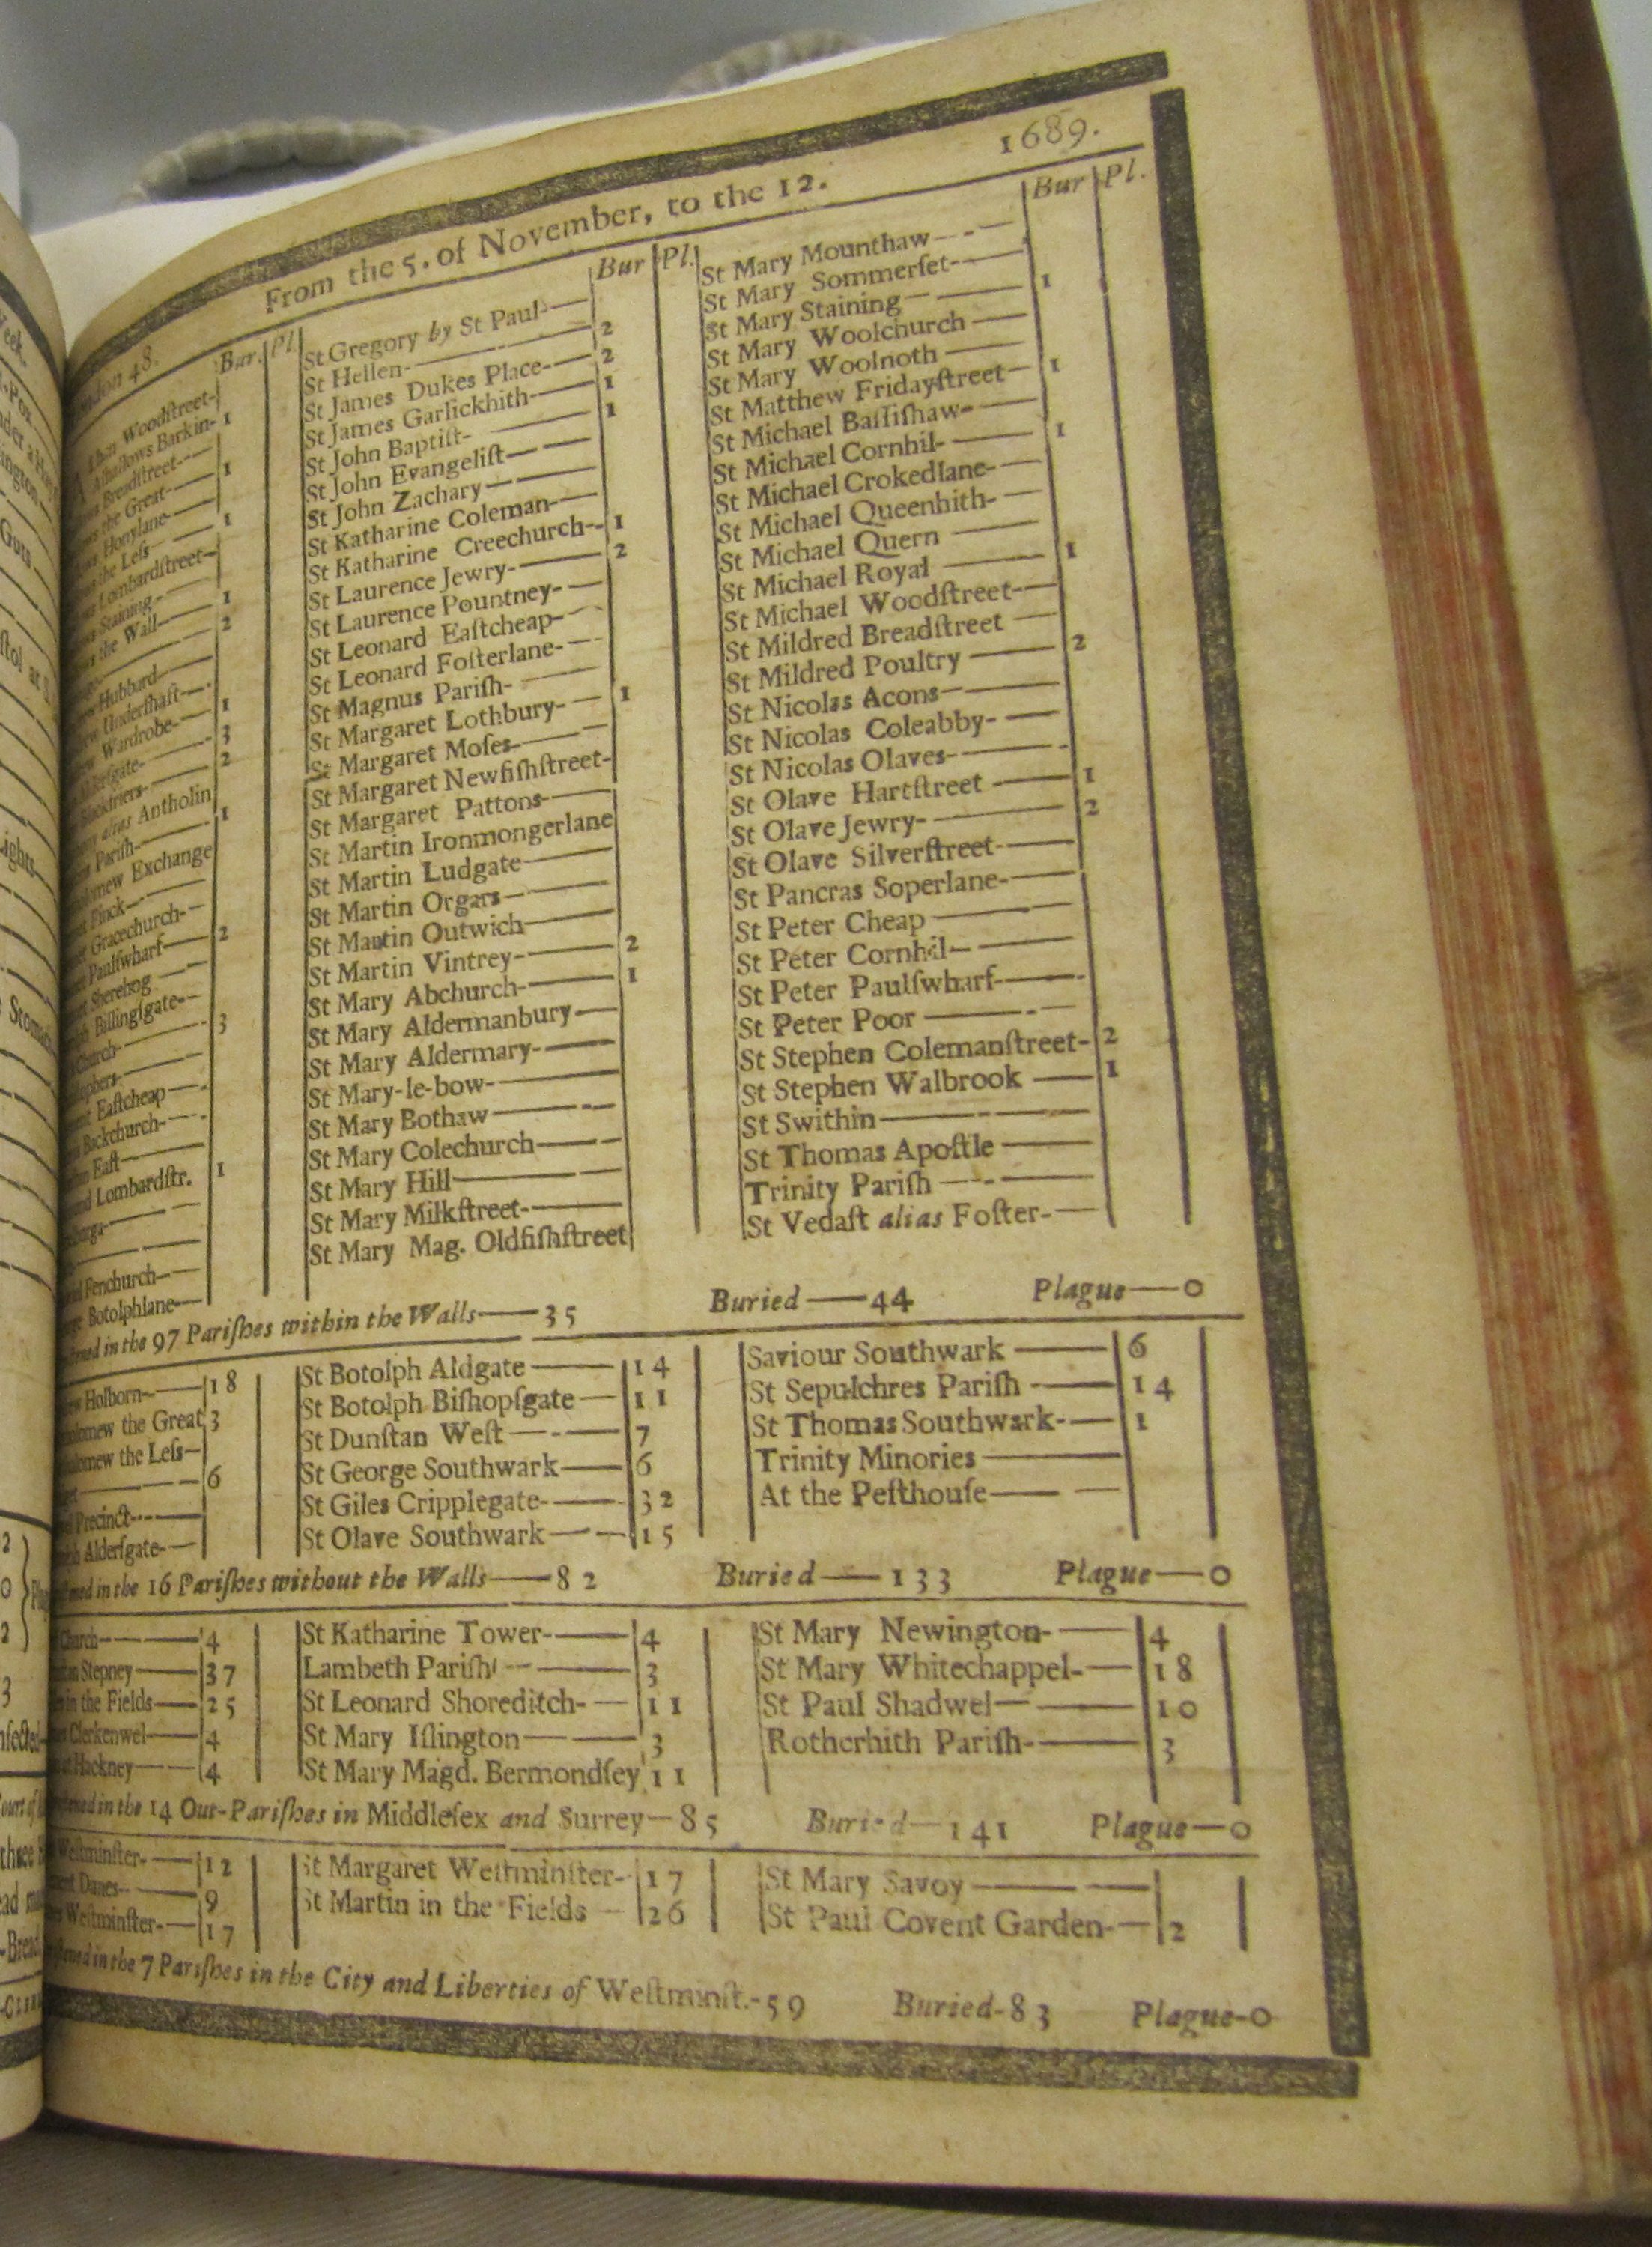 1689.
From the 5. of November, to the 12.
48.
Bur. Pl.
Woodſtreet-
Alhallows Barkin- 1
Breadſtreet
the Great- 1
Honylane
the Leſs 1
Lombardſtreet
Staining
the Wall 1
2
Hubbard
Underſhaft
Wardrobe 1
Alderſgate- 3
Blackfriers 2
alias Antholin
Pariſh 1
Exchange
Finck
Gracechurch-
Paulſwharf 2
Sherehog
Billingſgate-
Church 3
Eaſtcheap
Backchurch-
Eaſt
Lombardſtr. 1
Fenchurch
Botolphlane
Bur Pl.
St Gregory by St Paul
St Hellen- 2
St James Dukes Place- 2
St James Garlickhith 1
St John Baptiſt- 1
St John Evangeliſt
St John Zachary
St Katharine Coleman-
St Katharine Creechurch- 1
St Laurence Jewry- 2
St Laurence Pountney-
St Leonard Eaſtcheap-
St Leonard Foſterlane-
St Magnus Pariſh-
St Margaret Lothbury- 1
St Margaret Moſes
St Margaret Newfiſhſtreet-
St Margaret Pattons
St Martin Ironmongerlane
St Martin Ludgate
St Martin Orgars
St Martin Outwich
St Martin Vintrey- 2
St Mary Abchurch- 1
St Mary Aldermanbury
St Mary Aldermary-
St Mary-le-bow-
St Mary Bothaw
St Mary Colechurch
St Mary Hill
St Mary Milkſtreet-
St Mary Mag. Oldfiſhſtreet
Bur Pl.
St Mary Mounthaw
St Mary Sommerſet
St Mary Staining 1
St Mary Woolchurch
St Mary Woolnoth
St Matthew Fridayſtreet 1
St Michael Baſſiſhaw
St Michael Cornhil- 1
St Michael Crokedlane-
St Michael Queenhith-
St Michael Quern
St Michael Royal 1
St Michael Woodſtreet
St Mildred Breadſtreet
St Mildred Poultry 2
St Nicolas Acons
St Nicolas Coleabby-
St Nicolas Olaves-
St Olave Hartſtreet 1
St Olave Jewry- 2
St Olave Silverſtreet
St Pancras Soperlane-
St Peter Cheap
St Peter Cornhil
St Peter Paulſwharf
St Peter Poor
St Stephen Colemanſtreet- 2
St Stephen Walbrook 1
St Swithin
St Thomas Apoſtle
Trinity Pariſh
St Vedaſt alias Foſter-
in the 97 Pariſhes within the Walls—35 Buried—44 Plague—0
Holborn 18
the Great 3
the Leſs
6
Precinct
Alderſgate-
St Botolph Aldgate 14
St Botolph Biſhopſgate 11
St Dunſtan Weſt 7
St George Southwark 6
St Giles Cripplegate- 32
St Olave Southwark 15
Saviour Southwark 6
St Sepulchres Pariſh 14
St Thomas Southwark- 1
Trinity Minories
At the Peſthouſe
in the 16 Pariſhes without the Walls—82 Buried—133 Plague—0
Church 4
Stepney 37
in the Fields 25
Clerkenwel 4
Hackney 4
St Katharine Tower- 4
Lambeth Pariſh 3
St Leonard Shoreditch- 11
St Mary Iſlington 3
St Mary Magd. Bermondſey 11
St Mary Newington- 4
St Mary Whitechappel- 18
St Paul Shadwel 10
Rotherhith Pariſh- 3
in the 14 Out-Pariſhes in Middleſex and Surrey—85 Buried—141 Plague—0
Weſtminſter- 12
Danes 9
Weſtminſter- 17
St Margaret Weſtminſter- 17
St Martin in the Fields 26
St Mary Savoy
St Paul Covent Garden- 2
in the 7 Pariſhes in the City and Liberties of Weſtminſt.-59 Buried-83 Plague-0